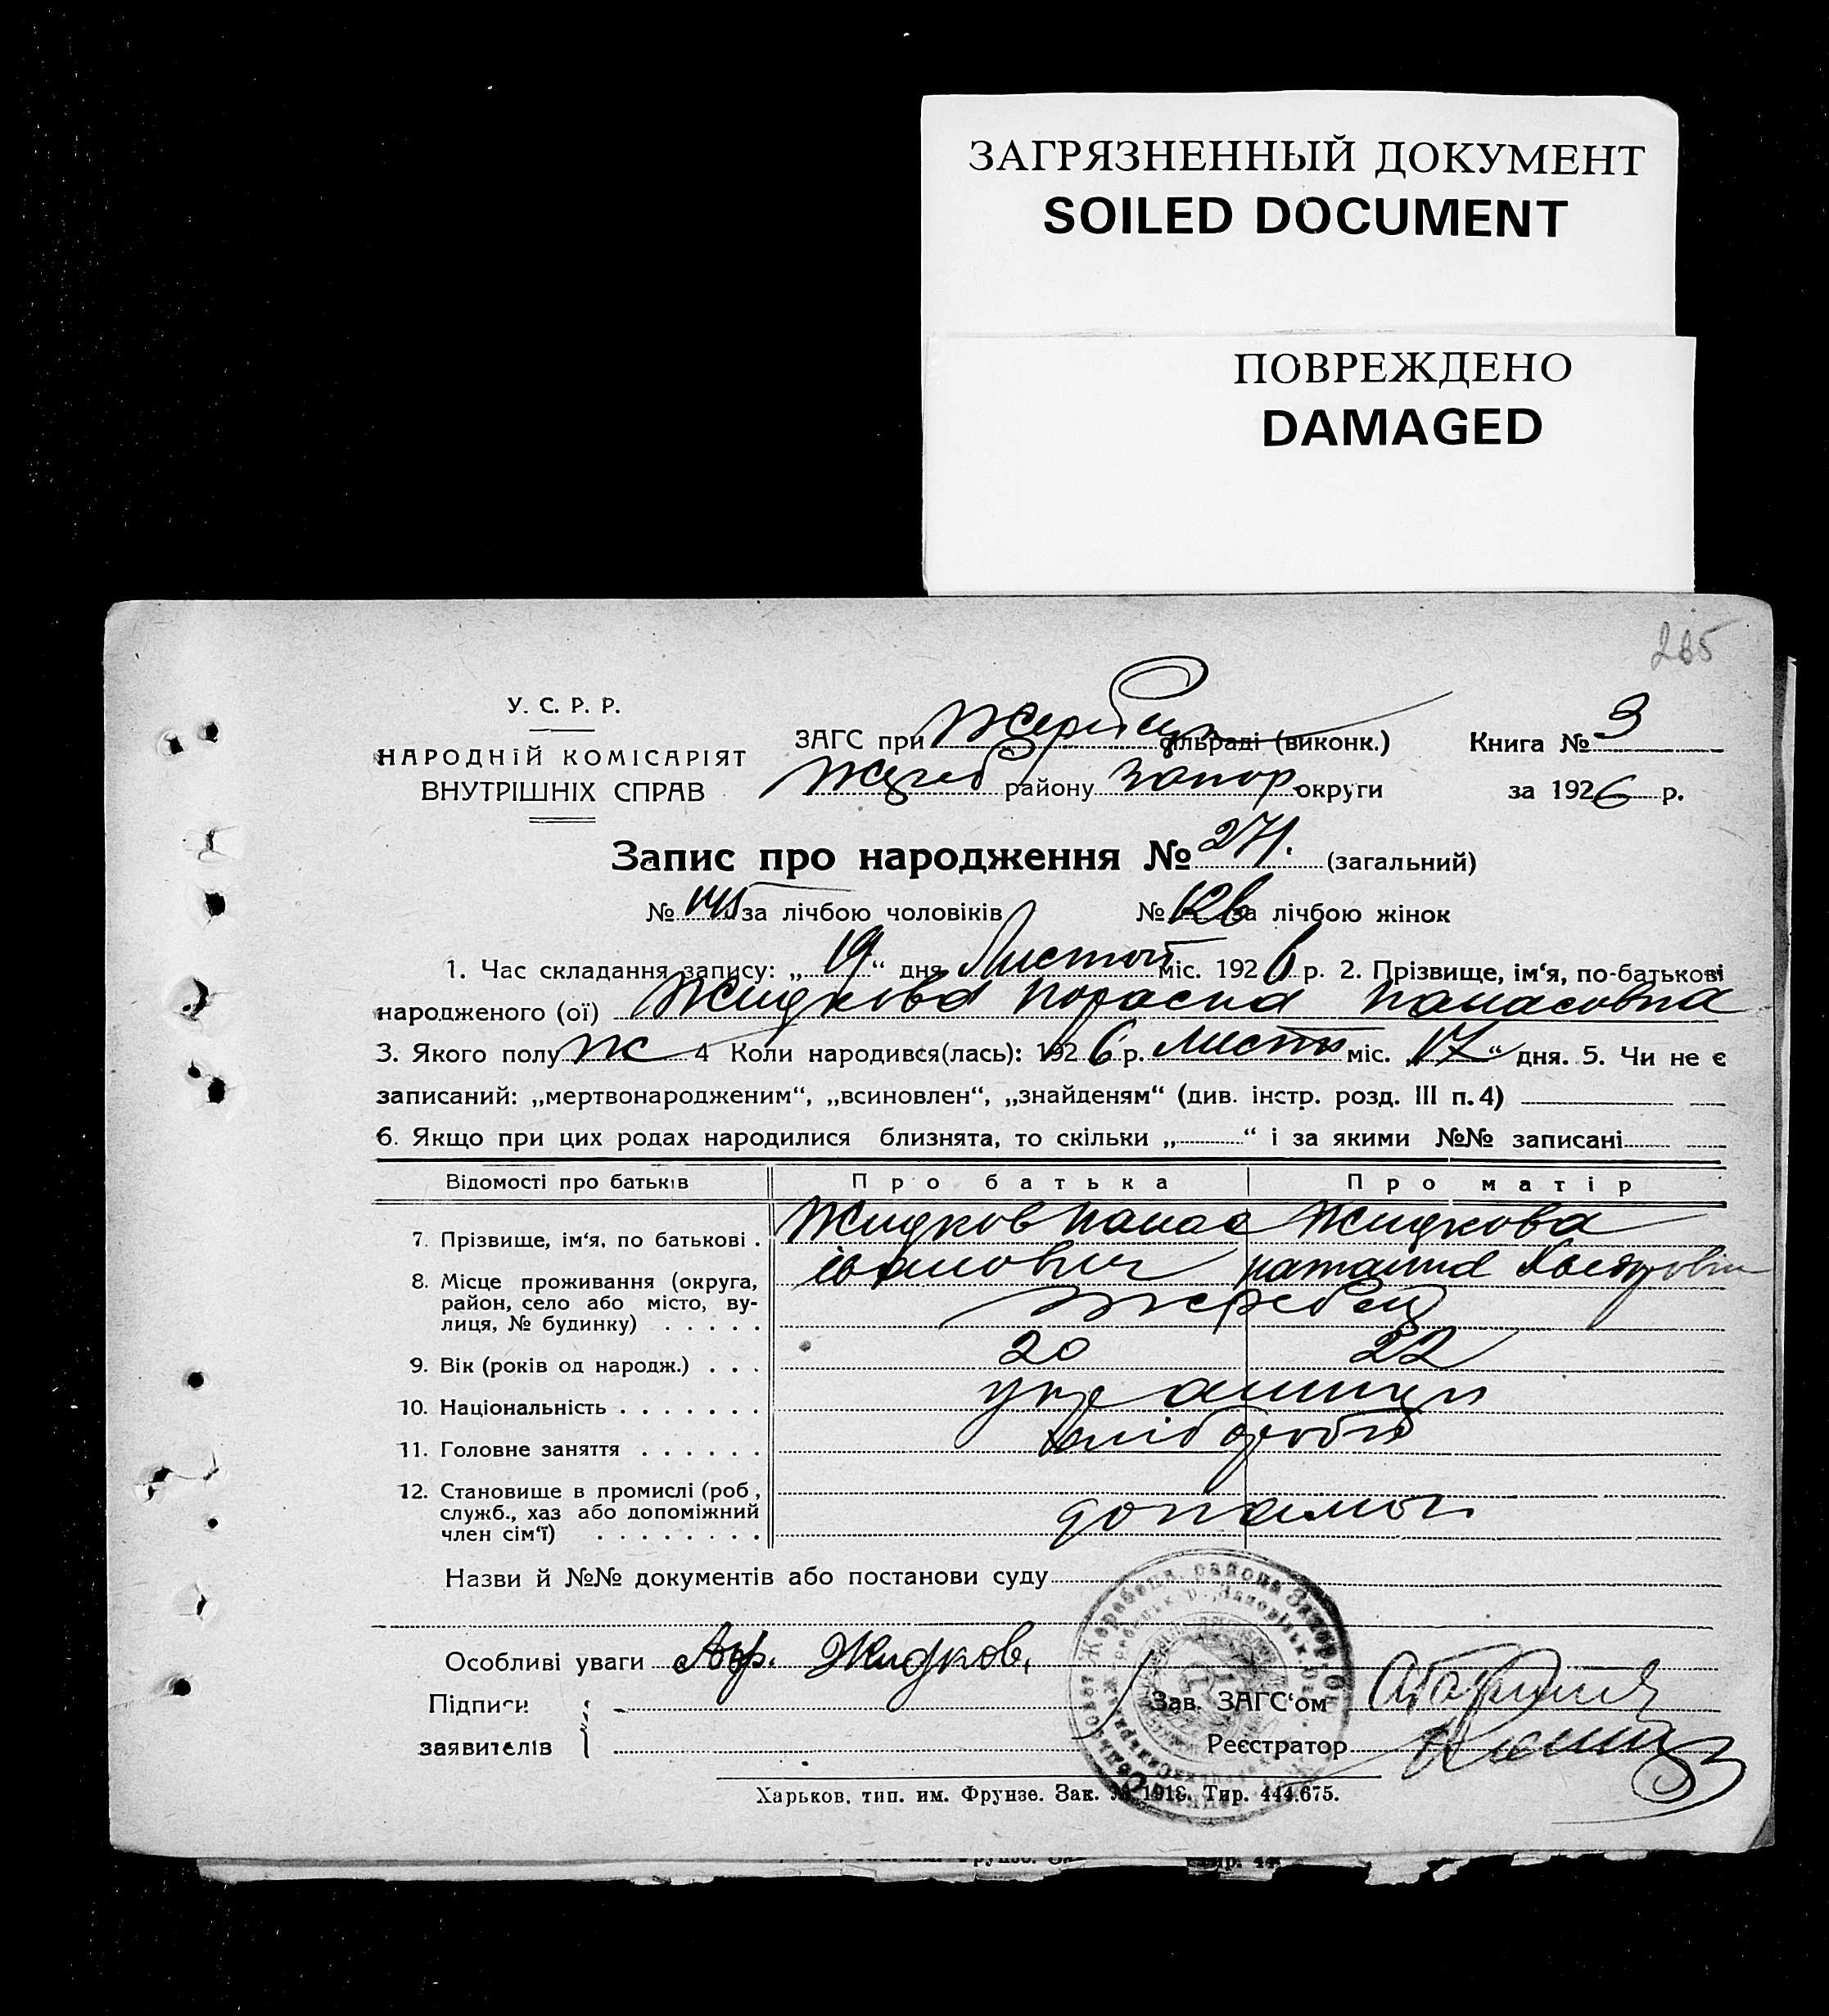 ЗАГРЯЗНЕННЫЙ ДОКУМЕНТ
SOILED DOCUMENT
ПОВРЕЖДЕНО
DAMAGED
265
У. С. Р. Р.
НАРОДНІЙ КОМІСАРІЯТ
ВНУТРІШНІХ СПРАВ
ЗАГС при сільраді (виконк.)
Книга № 3
Жереб району Запор округи
за 1926 р.
Запис про народження № 271. (загальний)
№ 145 за лічбою чоловіків № 126 за лічбою жінок
1. Час складання запису: „19“ дня Листоп міс. 1926 р. 2. Прізвище, ім‘я, по-батькові
народженого (ої) Жидкова Порасна Панасовна
3. Якого полу ж 4 Коли народився(лась): 1926 р. Листп міс. „17“ дня. 5. Чи не є
записаний: „мертвонародженим“, „всиновлен“, „знайденям“ (див. інстр. розд. III п. 4)
6. Якщо при цих родах народилися близнята, то скільки „ “ і за якими №№ записані
Відомості про батьків Про батька Про матір
7. Прізвище, ім‘я, по батькові . Жидков Панас Жидкова
іванович наталия
8. Місце проживання (округа,
район, село або місто, ву-
лиця, № будинку) . . . . . Жеребец
9. Вік (років од народж.) . . . 20 22
10. Національність . . . . . . .
11. Головне заняття . . . . . . хлібороби
12. Становище в промислі (роб,
служб., хаз або допоміжний
член сім‘ї) . . . . . . . . допамог
Назви й №№ документів або постанови суду
Особливі уваги Жидков,
Підписи
заявителів
Зав. ЗАГС‘ом
Реєстратор
Харьков, тип. им. Фрунзе. Зак. № 1918. Тир. 444.675.